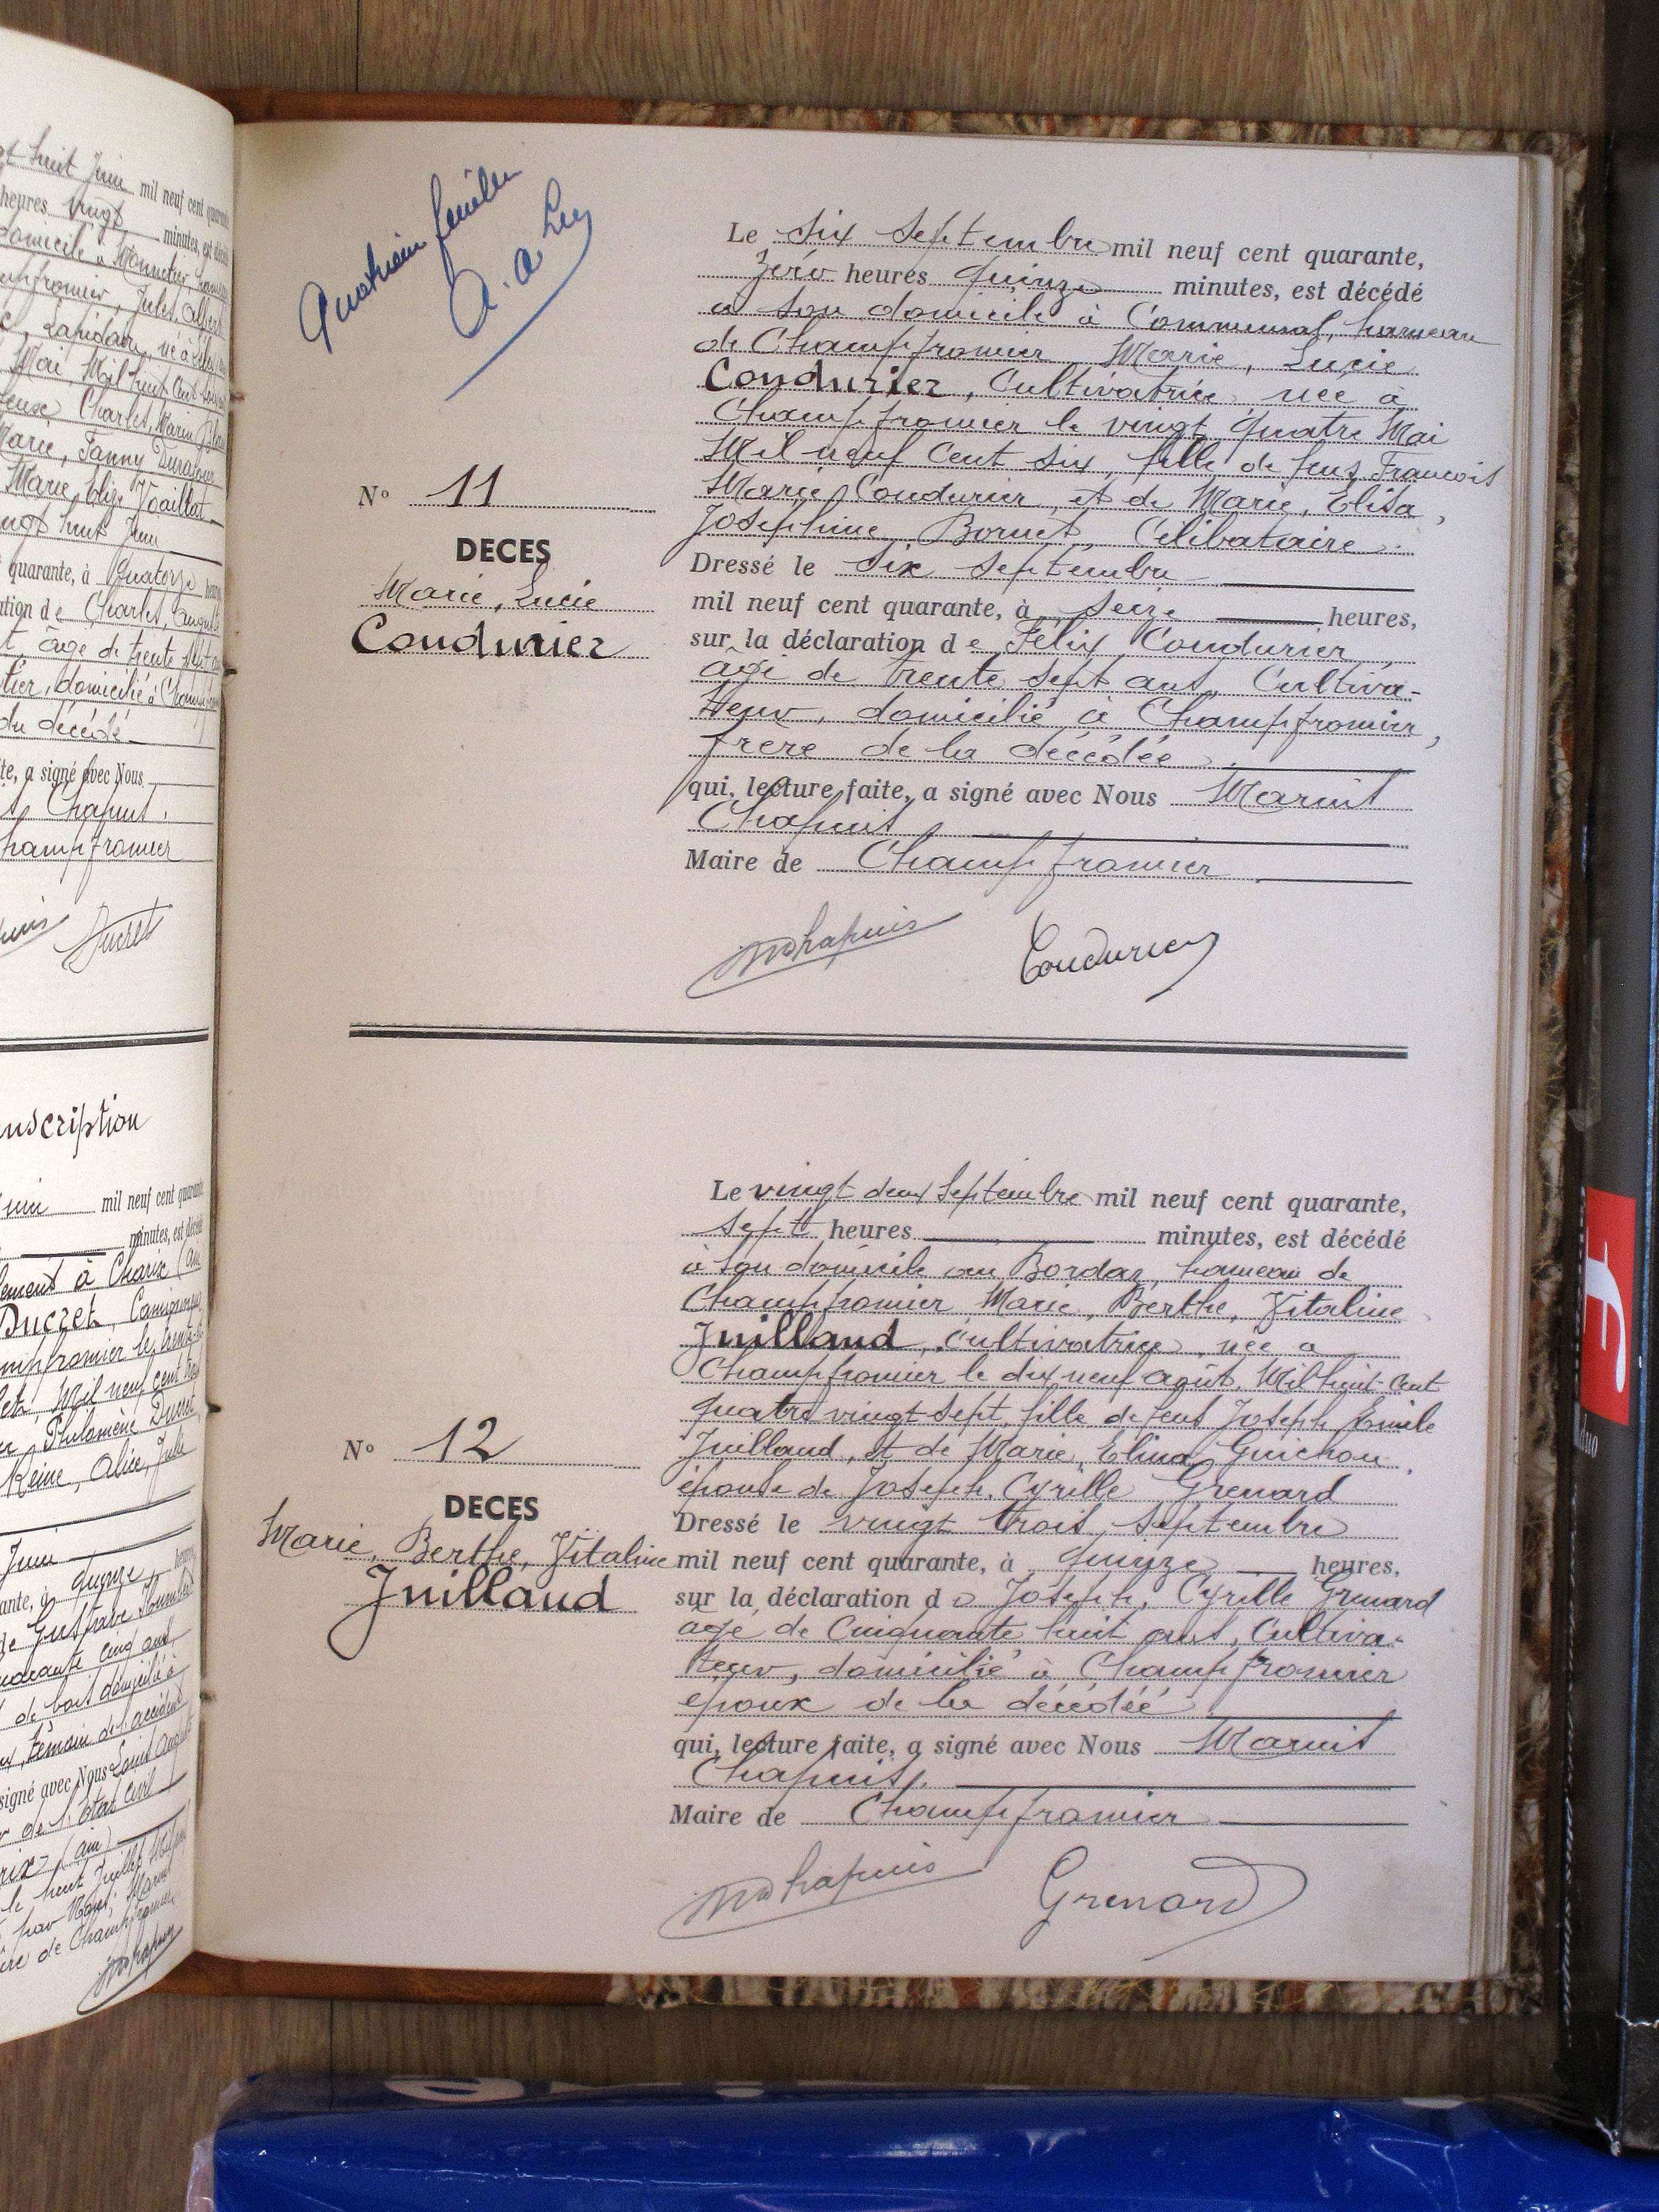 t huit Juin mil neuf cent quarante
heures vingt minutes, est décédé
domicile à Monnetier, hameau
Jules, Albert
Lapidaire, né à
Mai, Mil huit cent
Charles, Marin
Marie, Fanny Duraffour
Marie, Elize Voaillat
vingt huit Juin
quarante, à Quatorze heures
ation de Charles, Auguste
t, âgé de trente sept ans
tier, domicilié à Champfromier
du décédé
te, a signé avec Nous
Chapuis.
hampfromier
Ducret
nscription
uin mil neuf cent quarante
minutes, est décédé
lement à Charix (Ain
Ducret, Camionneur
mpfromier le trente
let, Mil neuf cent trois
Philomène Ducret
Reine, Alice, Julie
Juin
ante, à quinze heures
de Gustave
quarante cinq ans,
de bois domicilié à
x, témoin de l'accident
signé avec Nous Louis Auguste
r de l'état civil
rix (ain)
le huit Juillet Mil
par Nous, Marius
ire de Champfromier
Quatrième feuille
A. a Ley
Le six Septembre mil neuf cent quarante,
zéro heures quinze minutes, est décédé
a son domicile à Communal, hameau
de Champfromier, Marie, Lucie
Coudurier, Cultivatrice, née à
Champfromier le vingt quatre Mai
Mil neuf Cent six, fille de feus François
Marie, Coudurier, et de Marie, Elisa,
Joséphine, Bornet, Célibataire.
N° 11
DECES
Marie, Lucie
Coudurier
Dressé le Six Septembre
mil neuf cent quarante, à Seize heures,
sur la déclaration de Félix, Coudurier,
âgé de trente sept ans, Cultiva-
teur, domicilié à Champfromier,
frère de la décédée
qui, lecture faite, a signé avec Nous Marius
Chapuis
Maire de Champfromier
MChapuis Coudurier
Le vingt deux Septembre mil neuf cent quarante,
sept heures minutes, est décédé
à son domicile au Bordaz, hameau de
Champfromier Marie, Berthe, Vitaline
Juilland, Cultivatrice, née a
Champfromier le dix neuf août, Mil huit Cent
quatre vingt sept, fille de feus Joseph Emile
Juilland, et de Marie, Elina, Guichon,
épouse de Joseph, Cyrille Grenard
N° 12
DECES
Marie, Berthe, Vitaline
Juilland
Dressé le vingt trois, Septembre
mil neuf cent quarante, à quinze heures,
sur la déclaration de Joseph, Cyrille Grenard
âgé de Cinquante huit ans, Cultiva-
teur, domicilié à Champfromier
époux de la décédée
qui, lecture faite, a signé avec Nous Marius
Chapuis,
Maire de Champfromier
MChapuis Grenard